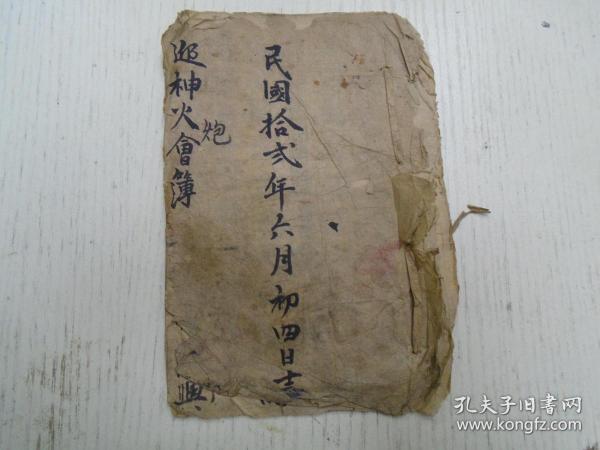 民國拾弍年六月初四日志
迎神火會簿
炮
興
孔夫子旧書网
www.kongfz.com